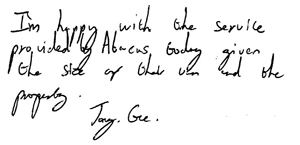 I'm happy with the service
provided by Abacus, today given
the size of their van and the
property.
Jay. Gee.